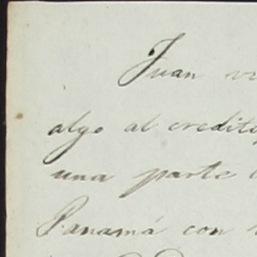 Juan
algo al credito
una parte
Panamá con